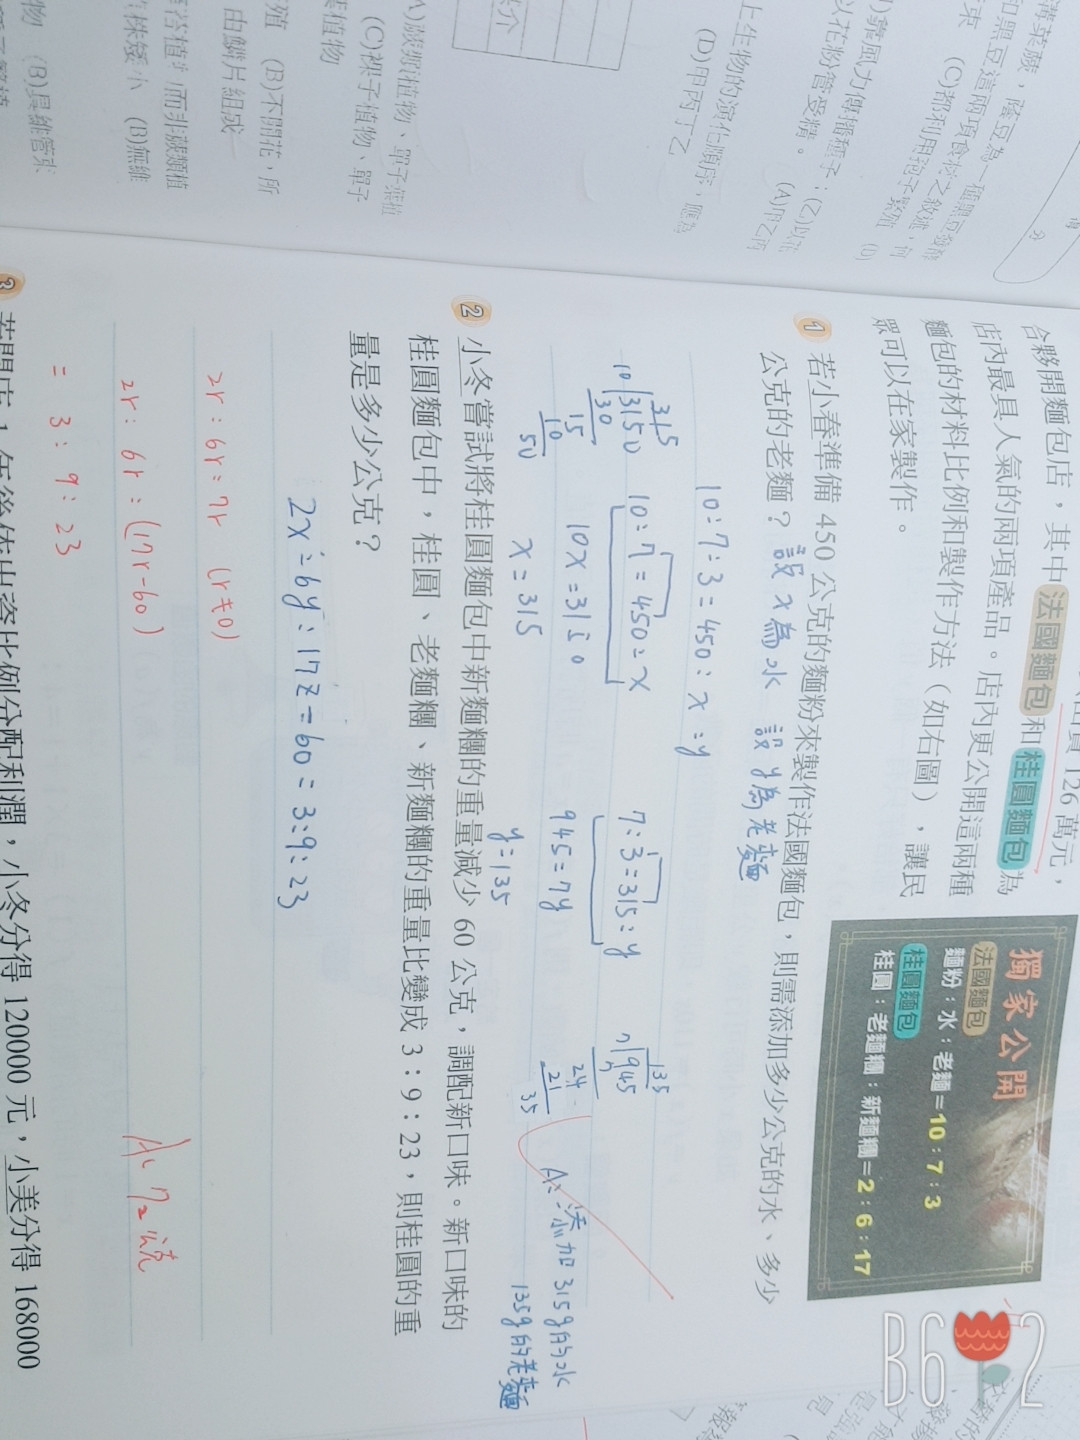 出資 126 萬元，
合夥開麵包店，其中法國麵包和桂圓麵包為
店內最具人氣的兩項產品。店內更公開這兩種
麵包的材料比例和製作方法（如右圖），讓民
眾可以在家製作。
獨家公開
法國麵包
麵粉：水：老麵＝10：7：3
桂圓麵包
桂圓：老麵糰：新麵糰＝2：6：17
1 若小春準備 450 公克的麵粉來製作法國麵包，則需添加多少公克的水、多少
公克的老麵？ 設 x 為水 設 y 為老麵
10:7:3=450:x:y
10:7=450:x
10x=3150
x=315
7:3=315:y
945=7y
y=135
315
10 3150
30
15
10
50
135
7 945
7
24
21
35
A: 添加 315g的水
135g的老麵
2 小冬嘗試將桂圓麵包中新麵糰的重量減少 60 公克，調配新口味。新口味的
桂圓麵包中，桂圓、老麵糰、新麵糰的重量比變成 3：9：23，則桂圓的重
量是多少公克？
2x:6y:17z-60=3:9:23
2r:6r:7r (r≠0)
2r:6r:(17r-60)
=3:9:23
A: 72克
3 若開店 1 年後依出資比例分配利潤，小冬分得 120000 元，小美分得 168000
(D)甲丙丁乙
上生物的演化順序，應為
(C)裸子植物、單子
(B)不開花，所
由鱗片組成
株矮小 (B)無維
(B)具維管束
B612